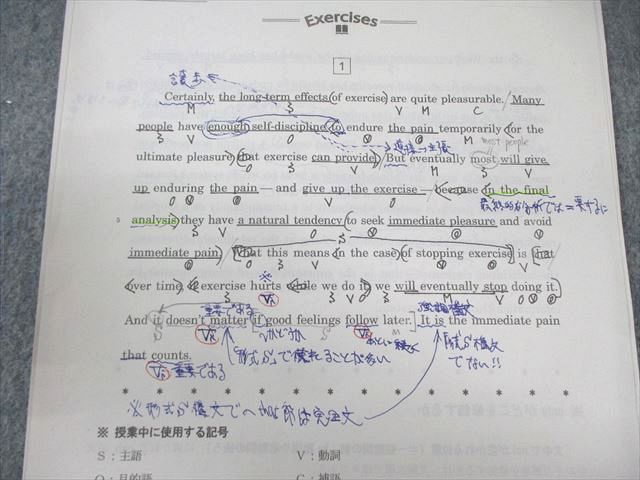 Exercises
1
譲歩
Certainly, the long-term effects (of exercise) are quite pleasurable. Many
M S V M C
people have enough self-discipline to endure the pain temporarily for the
S V O V O M most people
逆接→主張
ultimate pleasure that exercise can provide. But eventually most will give
S V M S V
up enduring the pain — and give up the exercise — because in the final
O V O V O
最終的な分析では=要するに
5 analysis they have a natural tendency to seek immediate pleasure and avoid
S V O V O V
immediate pain. What this means in the case of stopping exercise is that
O S V V
over time, if exercise hurts while we do it, we will eventually stop doing it.
S S V O S V O
※ Vi 重要である 強調構文
And it doesn't matter if good feelings follow later. It is the immediate pain
S かどうか Vi M
「形式S」で訳れることが多い 形式S構文でない!!
that counts.
Vi 重要である
* * * * * * * * * * * * *
※形式S構文で
※ 授業中に使用する記号
S:主語 V:動詞
O:目的語 C:補語